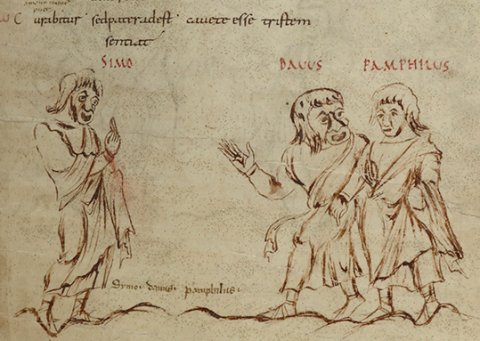 C urabitur sed pater adest cave te esse tristem
sentiat
SIMO DAVUS PAMPHILUS
Symo · davus · pamphilus ·